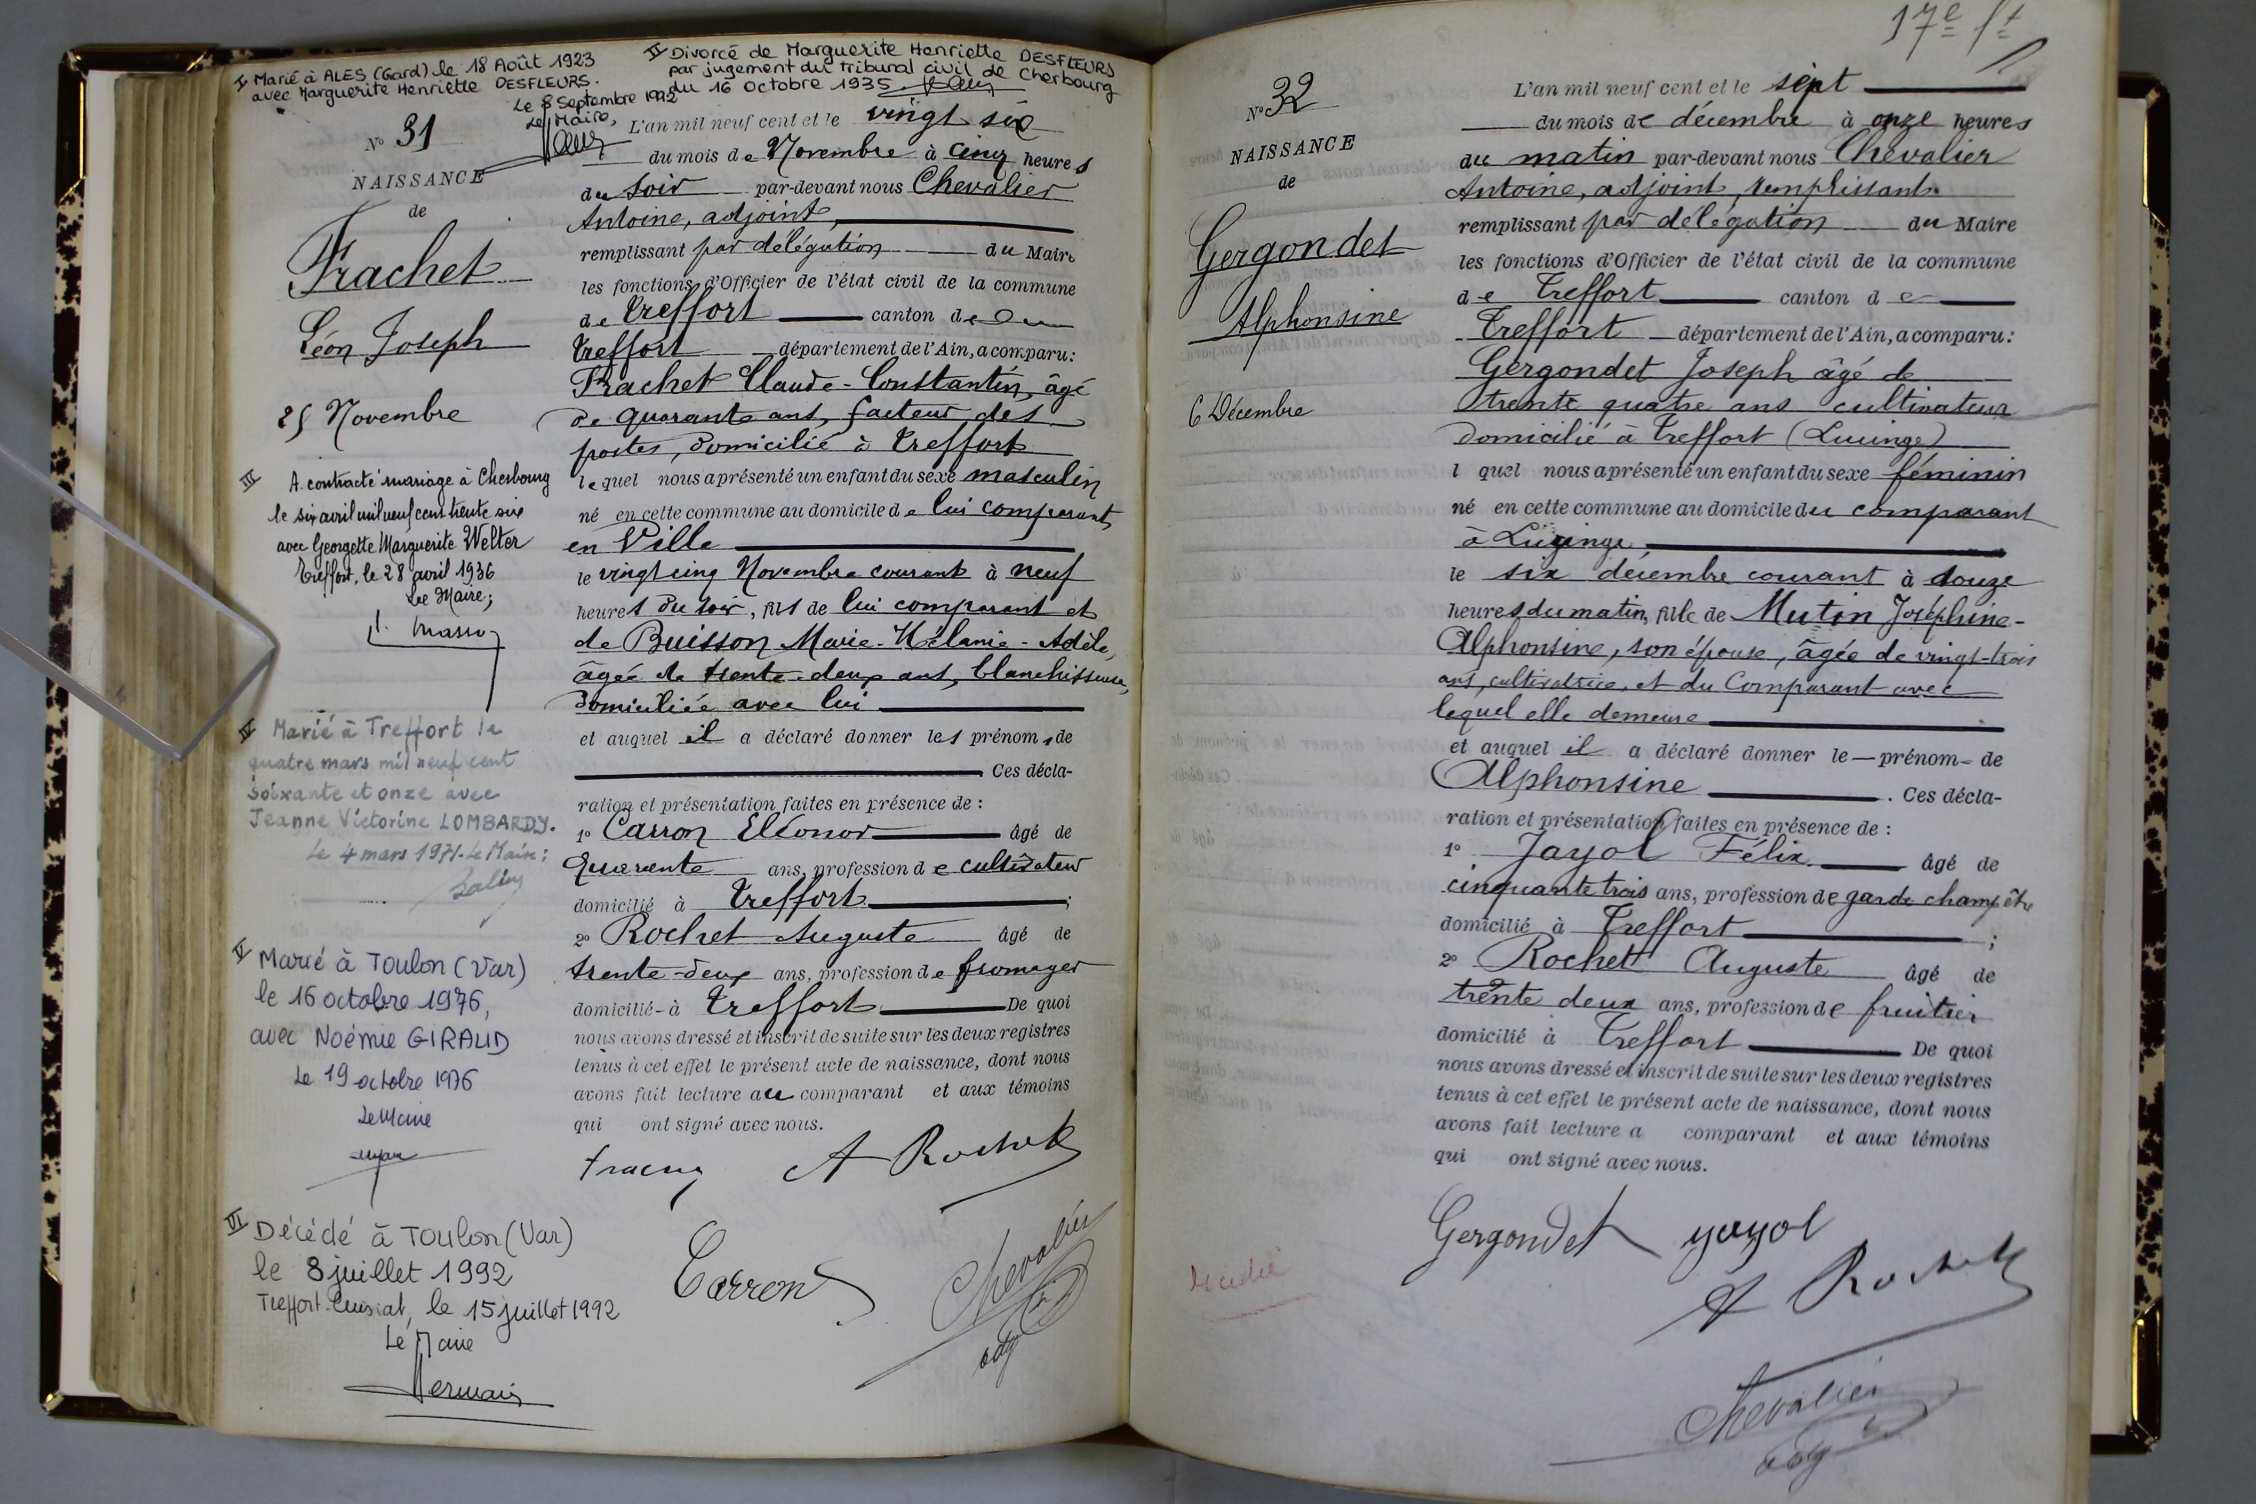 I Marié à ALES (Gard) le 18 Août 1923
avec Marguerite Henriette DESFLEURS.
Le 8 Septembre 1992
Le Maire,
II Divorcé de Marguerite Henriette DESFLEURS
par jugement du tribunal civil de Cherbourg
du 16 octobre 1935.
N° 31
NAISSANCE
de
Frachet
Léon Joseph
25 Novembre
III A contracté mariage à Cherbourg
le six avril mil neuf cent trente six
avec Georgette Marguerite Welter
Treffort, le 28 avril 1936
Le Maire;
IV Marié à Treffort le
quatre mars mil neuf cent
soixante et onze avec
Jeanne Victorine LOMBARDY.
Le 4 mars 1971. Le Maire:
V Marié à Toulon (Var)
le 16 octobre 1976,
avec Noémie GIRAUD
Le 19 octobre 1976
Le Maire
VI Décédé à Toulon (Var)
le 8 juillet 1992
Treffort-Cuisiat, le 15 juillet 1992
Le Maire
L'an mil neuf cent et le vingt six
du mois de Novembre à cinq heures
du soir par-devant nous Chevalier
Antoine, adjoint,
remplissant par délégation du Maire
les fonctions d'Officier de l'état civil de la commune
de Treffort canton de
Treffort département de l'Ain, a comparu:
Frachet Claude-Constantin, âgé
de quarante ans, facteur des
postes, domicilié à Treffort
lequel nous a présenté un enfant du sexe masculin
né en cette commune au domicile de lui comparant
en Ville
le vingt cinq Novembre courant à neuf
heures du soir, fils de lui comparant et
de Buisson Marie-Mélanie-Adèle,
âgée de trente-deux ans, blanchisseuse,
domiciliée avec lui
et auquel il a déclaré donner les prénoms de
Ces décla-
ration et présentation faites en présence de :
1° Carron Eléonor âgé de
Quarante ans, profession de cultivateur
domicilié à Treffort ;
2° Rochet Auguste âgé de
trente-deux ans, profession de fromager
domicilié à Treffort De quoi
nous avons dressé et inscrit de suite sur les deux registres
tenus à cet effet le présent acte de naissance, dont nous
avons fait lecture au comparant et aux témoins
qui ont signé avec nous.
A Rochet
Carron
Chevalier
adj
17e ft
N° 32
NAISSANCE
de
Gergondet
Alphonsine
6 Décembre
L'an mil neuf cent et le sept
du mois de décembre à onze heures
du matin par-devant nous Chevalier
Antoine, adjoint, remplissant
remplissant par délégation du Maire
les fonctions d'Officier de l'état civil de la commune
de Treffort canton de
Treffort département de l'Ain, a comparu:
Gergondet Joseph âgé de
trente quatre ans cultivateur
domicilié à Treffort (Lucinge)
l quel nous a présenté un enfant du sexe féminin
né en cette commune au domicile du comparant
à Lucinge
le six décembre courant à douze
heures du matin, fille de Mutin Joséphine-
Alphonsine, son épouse, âgée de vingt-trois
ans, cultivatrice, et du Comparant avec
lequel elle demeure
et auquel il a déclaré donner le prénom de
Alphonsine . Ces décla-
ration et présentation faites en présence de :
1° Jayol Félix âgé de
cinquante trois ans, profession de garde champêtre
domicilié à Treffort ;
2° Rochet Auguste âgé de
trente deux ans, profession de fruitier
domicilié à Treffort De quoi
nous avons dressé et inscrit de suite sur les deux registres
tenus à cet effet le présent acte de naissance, dont nous
avons fait lecture a comparant et aux témoins
qui ont signé avec nous.
Gergondet yayol
A Rochet
Chevalier
adj